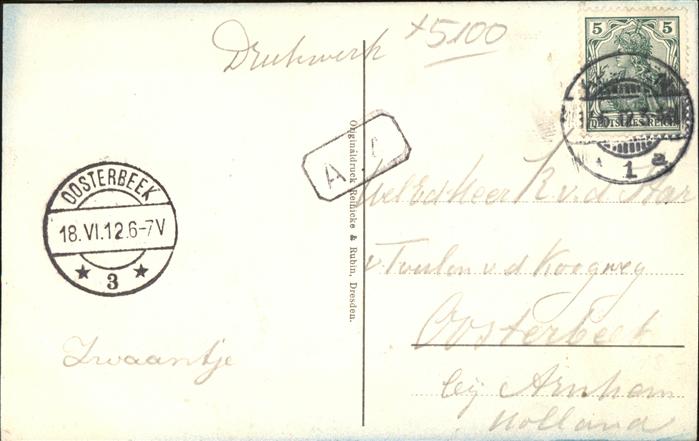 Drukwerk
+5100
5 5
DEUTSCHES REICH
1 a
A
Originaldruck Reinicke & Rubin, Dresden.
OOSTERBEEK
18.VI.12.6-7V
3
WelEd Heer K v. d
v Toulon v. d Koogweg
Oosterbeek
bij Arnhem
Holland
Zwaantje